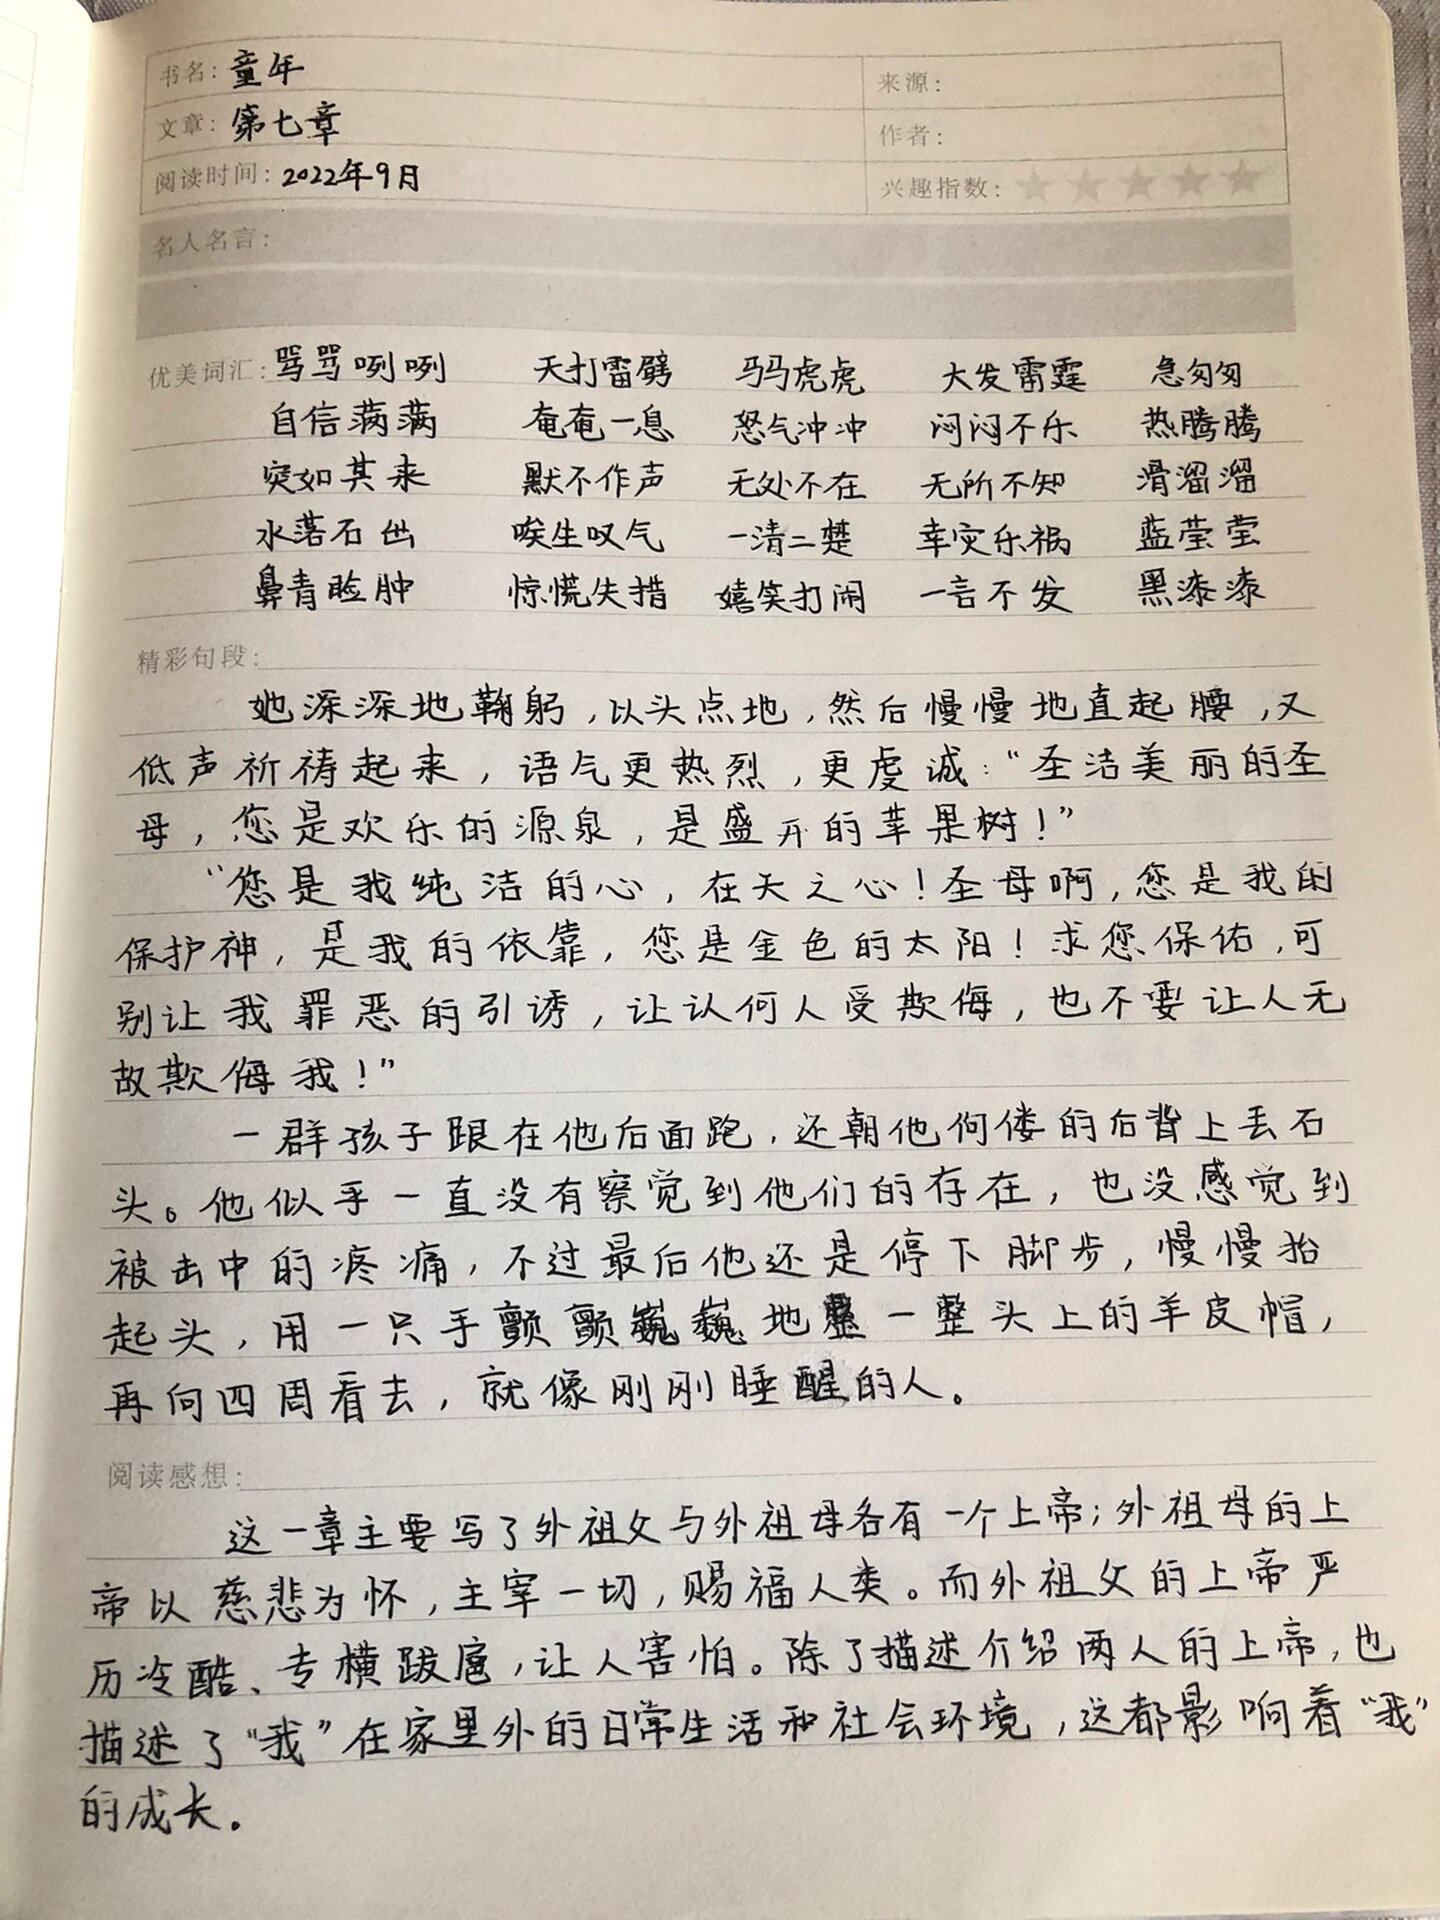 书名：童年
来源：
文章：第七章
作者：
阅读时间：2022年9月
兴趣指数：
名人名言：
优美词汇：骂骂咧咧 天打雷劈 马马虎虎 大发雷霆 急匆匆
自信满满 奄奄一息 怒气冲冲 闷闷不乐 热腾腾
突如其来 默不作声 无处不在 无所不知 滑溜溜
水落石出 唉生叹气 一清二楚 幸灾乐祸 蓝莹莹
鼻青脸肿 惊慌失措 嬉笑打闹 一言不发 黑漆漆
精彩句段：
她深深地鞠躬，以头点地，然后慢慢地直起腰，又
低声祈祷起来，语气更热烈，更虔诚：“圣洁美丽的圣
母，您是欢乐的源泉，是盛开的苹果树！”
“您是我纯洁的心，在天之心！圣母啊，您是我的
保护神，是我的依靠，您是金色的太阳！求您保佑，可
别让我罪恶的引诱，让认何人受欺侮，也不要让人无
故欺侮我！”
一群孩子跟在他后面跑，还朝他佝偻的后背上丢石
头。他似乎一直没有察觉到他们的存在，也没感觉到
被击中的疼痛，不过最后他还是停下脚步，慢慢抬
起头，用一只手颤颤巍巍地整一整头上的羊皮帽，
再向四周看去，就像刚刚睡醒的人。
阅读感想：
这一章主要写了外祖父与外祖母各有一个上帝；外祖母的上
帝以慈悲为怀，主宰一切，赐福人类。而外祖父的上帝严
历冷酷、专横跋扈，让人害怕。除了描述介绍两人的上帝，也
描述了“我”在家里外的日常生活和社会环境，这都影响着“我”
的成长。